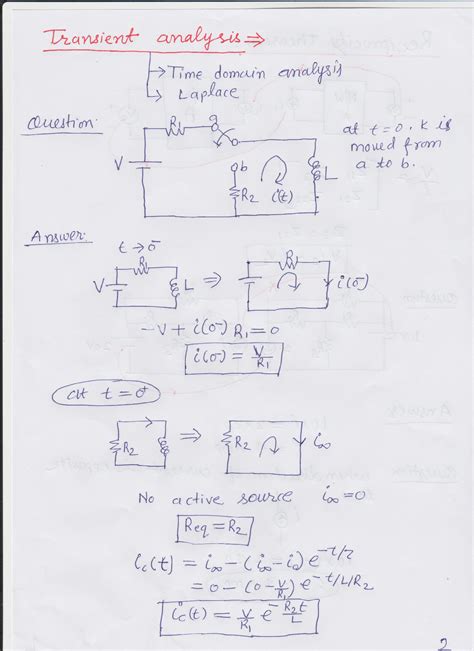 Transient analysis ⇒
→ Time domain analysis
→ Laplace
Question:
R1 a
at t=0, K is
moved from
a to b.
V b L
R2 i(t)
Answer:
t → 0⁻
R1
V L ⇒ i(0⁻)
-V + i(0⁻) R1 = 0
i(0⁻) = V/R1
at t = 0⁻
R2 ⇒ R2 i∞
No active source i∞ = 0
Req = R2
i_c(t) = i∞ - (i∞ - i0) e^-t/τ
= 0 - (0 - V/R1) e^-t/L/R2
i_c(t) = V/R1 e^-R2t/L
2